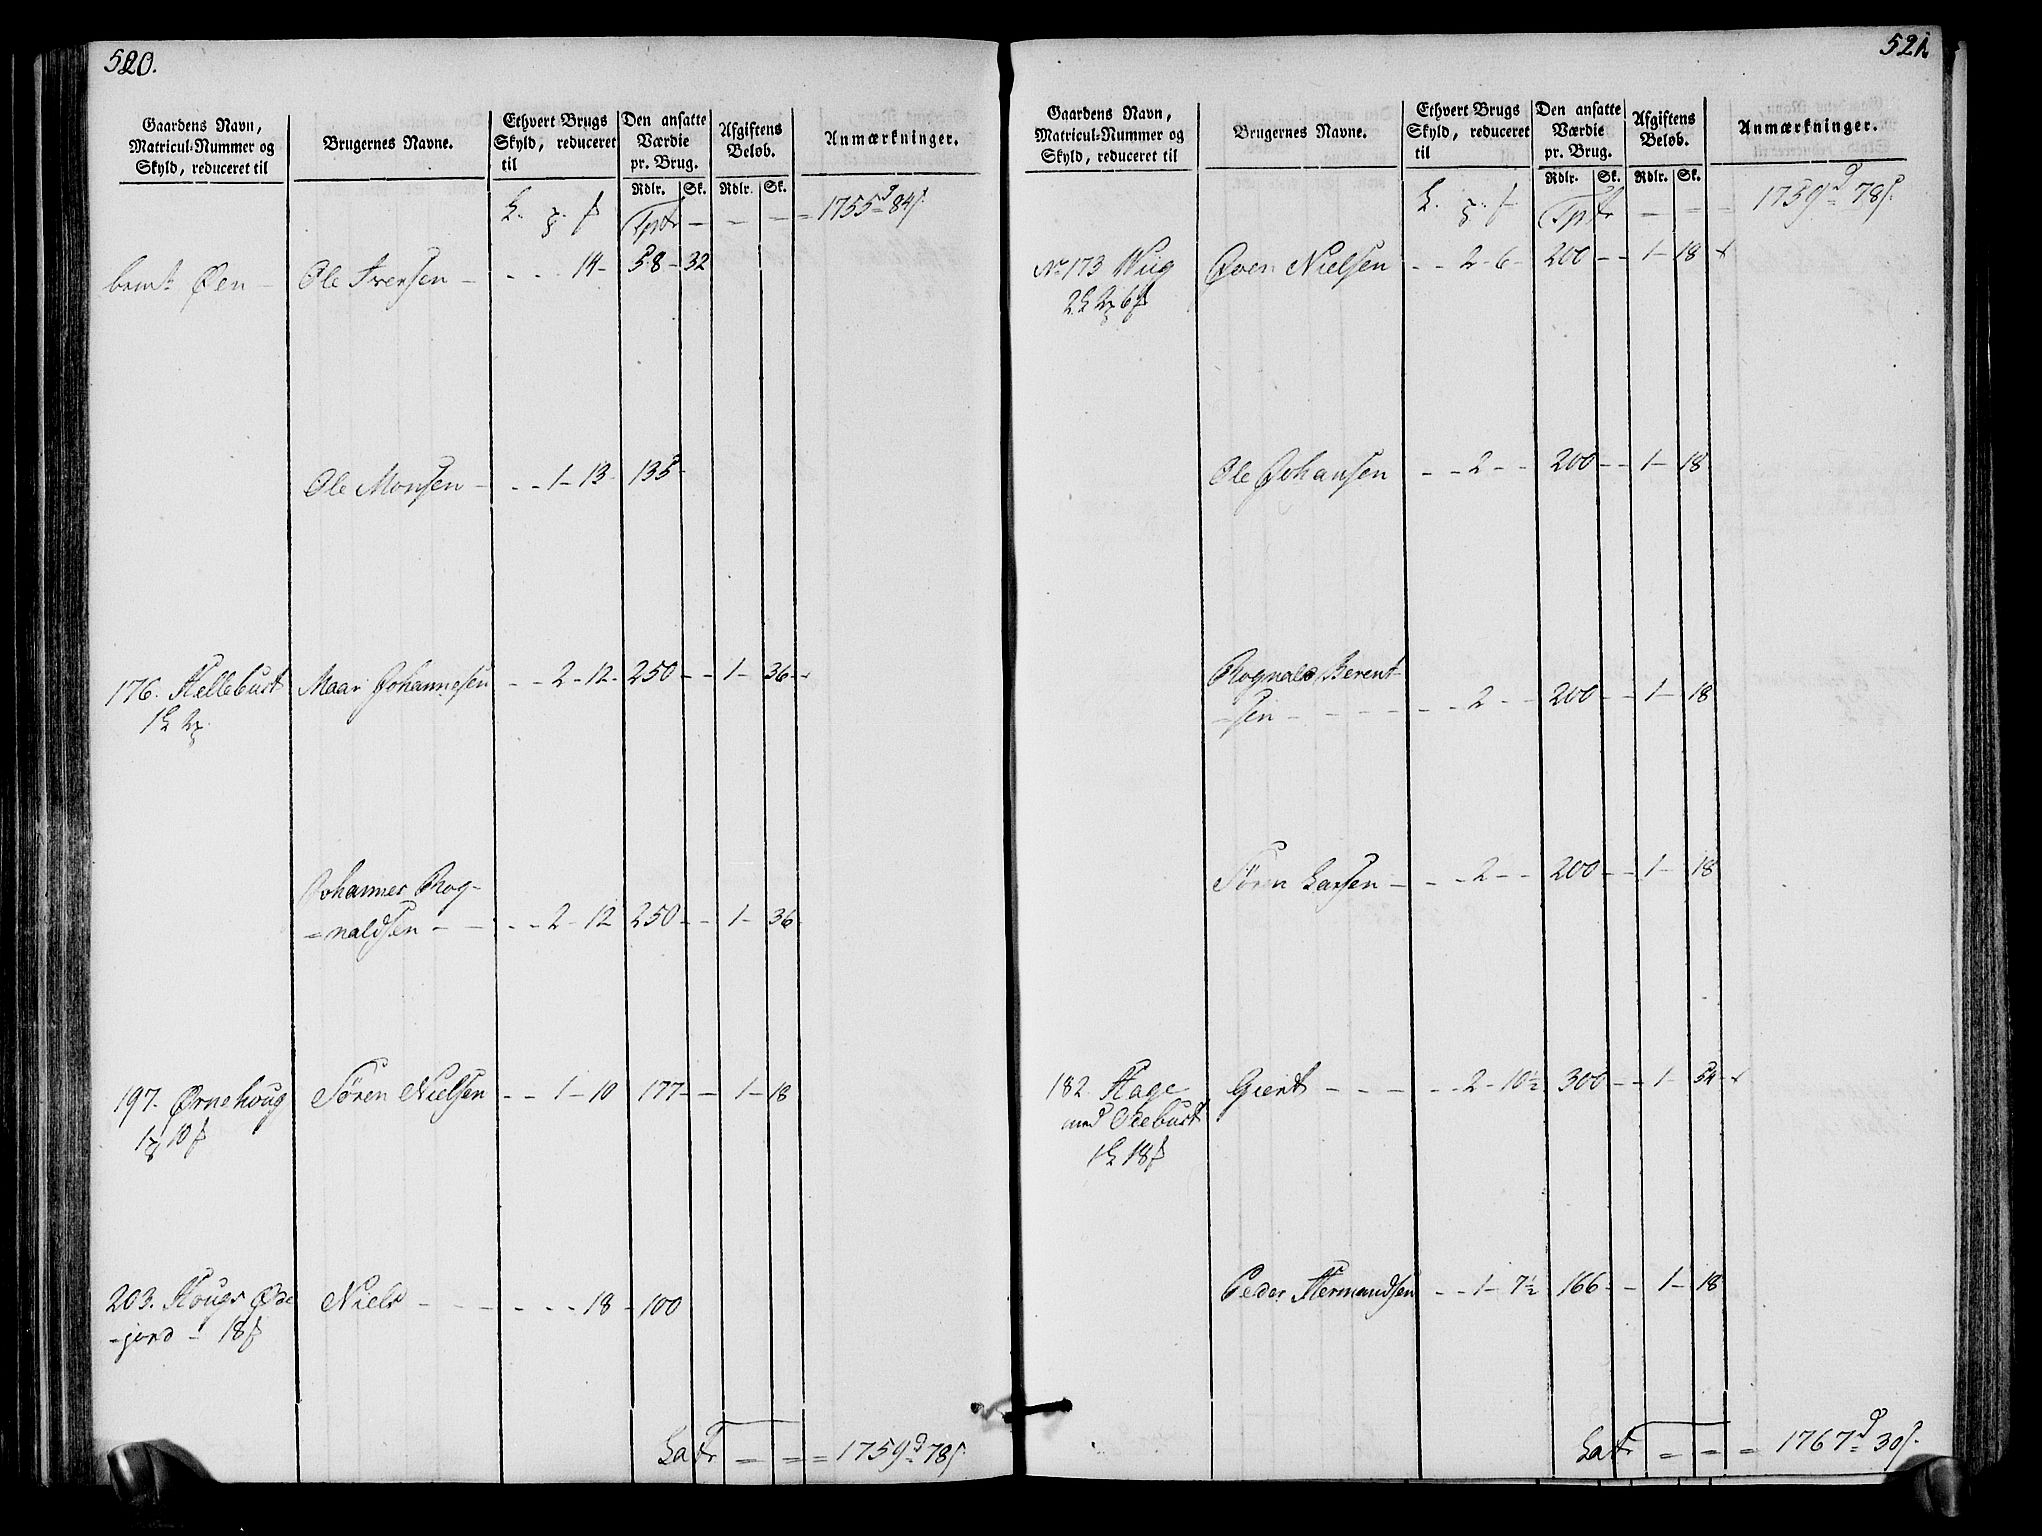 520.
Gaardens Navn,
Matricul-Nummer og
Skyld, reduceret til
Brugernes Navne.
Ethvert Brugs
Skyld, reduceret
til
Den ansatte
Værdie
pr. Brug.
Afgiftens
Beløb.
Anmærkninger.
Rdlr. Sk. Rdlr. Sk.
Tptr - - - = 1755 d 84 s.
bemt. Øen - Ole Iversen - - - - 14 - 58 - 32
Ole Monsen - - - 1 - 13 - 135 -
176. Hellebust Maar Johannesen - - 2 - 12 - 250 - - 1 - 36 -
Johannes Rog-
=naldsen - - - - 2 - 12 250 - - 1 - 36
197. Ørnehoug Søren Nielsen - - 1 - 10 177 - - 1 - 18
203. Hougs Øde Niels - - - - - - 18 - 100
-jord - 18
Latr = = = 1759 d 78 s.
521.
Gaardens Navn,
Matricul-Nummer og
Skyld, reduceret til
Brugernes Navne.
Ethvert Brugs
Skyld, reduceret
til
Den ansatte
Værdie
pr. Brug.
Afgiftens
Beløb.
Anmærkninger.
Rdlr. Sk. Rdlr. Sk.
Tptr = = = 1759 d 78 s.
No 173 Wiig Iver Nielsen - - 2 - 6 - 200 - - 1 - 18
Ole Johansen - - 2 - - 200 - - 1 - 18
Rognald Berent-
-sen - - - - - - 2 - - 200 - - 1 - 18
Søren Larsen - - - 2 - - 200 - - 1 - 18
182 Hage Gient - - - - - 2 - 10½ 300 - - 1 - 54
med Odebust
18
Peder Hermandsen - - 1 - 7½ 166 - - 1 - 18
Latr = = = 1767 d 30 s.